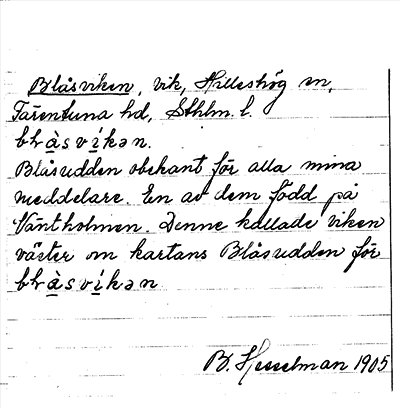 Blåsviken, vik, Hilleshög sn,
Färentuna hd, Sthlm. l.
blàsvíkən.
Blåsudden obekant för alla mina
meddelare. En av dem född på
Väntholmen. Denne kallade viken
väster om kartans Blåsudden för
blàsvíkən
B. Hesselman 1905